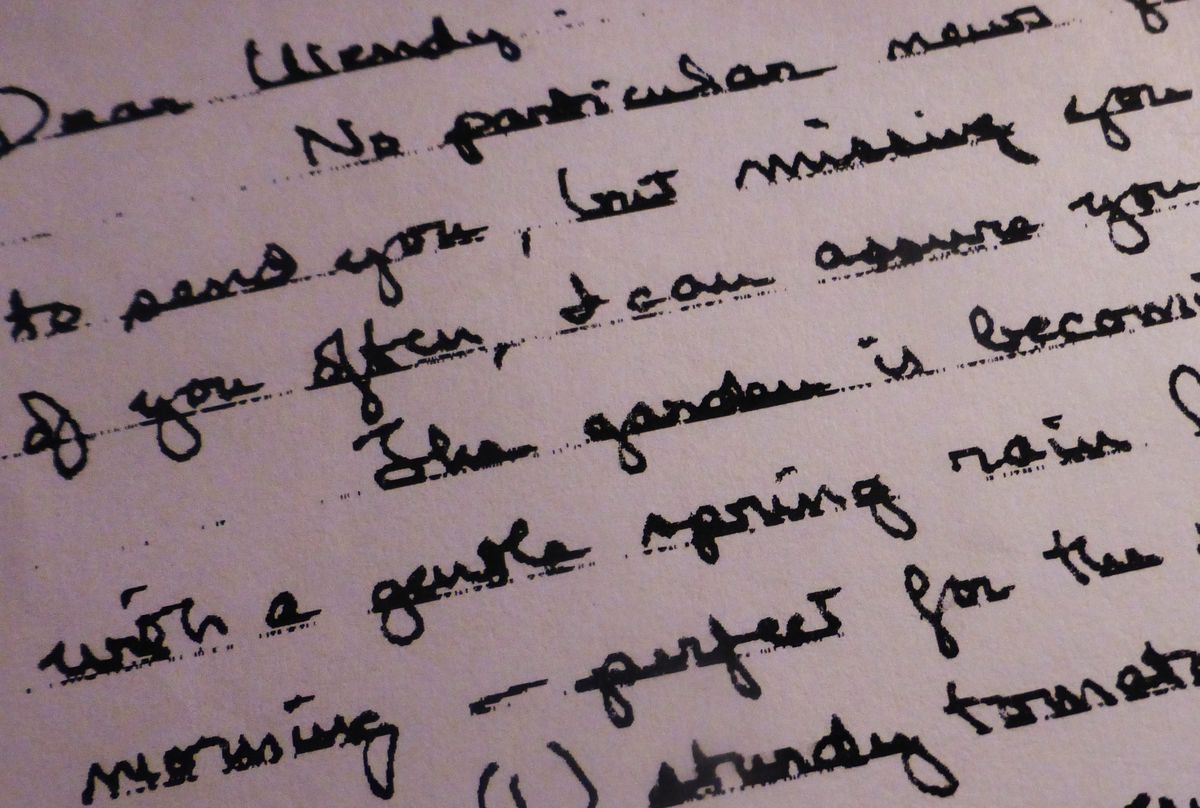 Dear Wendy
No particular news
to send you, but missing you
of you often, I can assure you
The garden is becomi
with a gentle spring rain
morning — perfect for the
(1) sturdy tomat